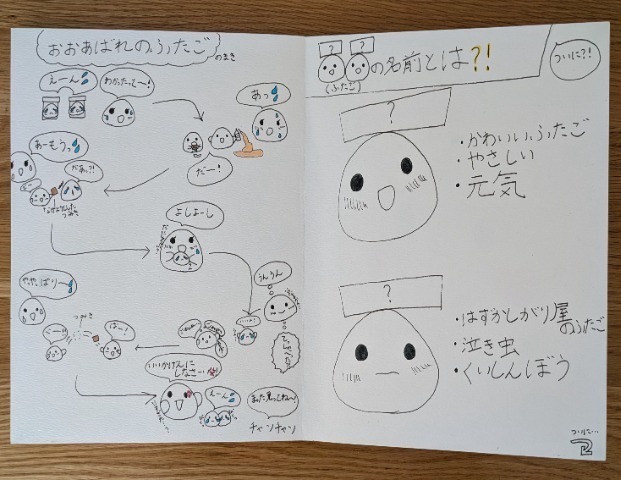 おおあばれのふたごのまき
えーん
わかったってー!
あっ
だー!
あーもうっ
だあっ?!
よしよーし
うんうん
ややっぱりー
つみき
ばー!
いいかげんに
しなさーい
えーん
まった見ってねー♪
チャンチャン
? ?
の名前とは?!
(ふたご)
ついに?!
?
・かわいいふたご
・やさしい
・元気
?
・はずかしがり屋
のふたご
・泣き虫
・くいしんぼう